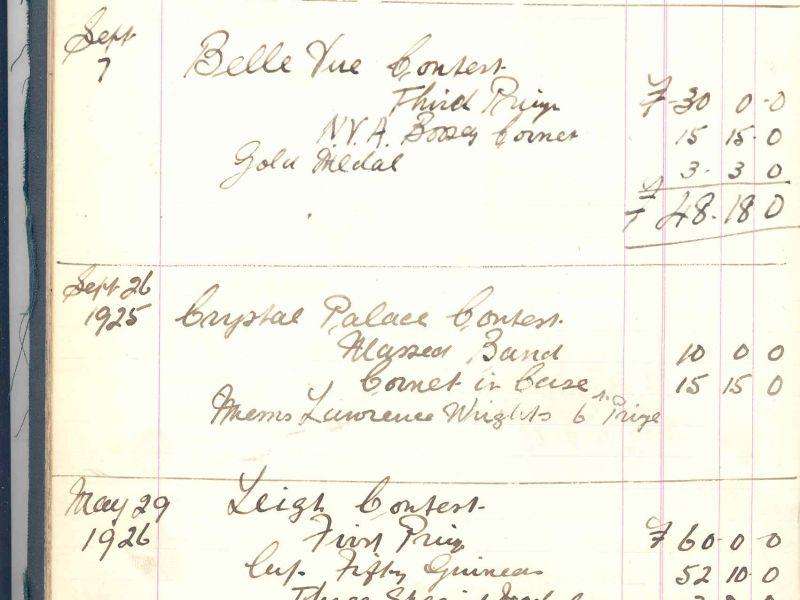 Sept
7 Belle Vue Contest
Third Prize £ 30 0-0
N.V.A. Boosey Cornet 15 15-0
Gold Medal 3-3 0
£ 48-18 0
Sept 26
1925 Crystal Palace Contest
Massed Band 10 0 0
Cornet in Case 15 15 0
Messrs Lawrence Wrights 6th Prize
May 29 Leigh Contest
1926 First Prize £ 60-0-0
Cup Fifty Guineas 52 10-0
Three Special